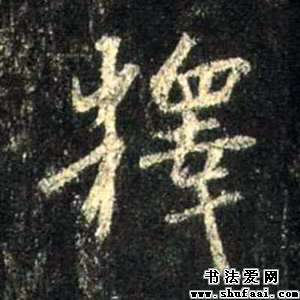 擇
书法爱网
www.shufaai.com